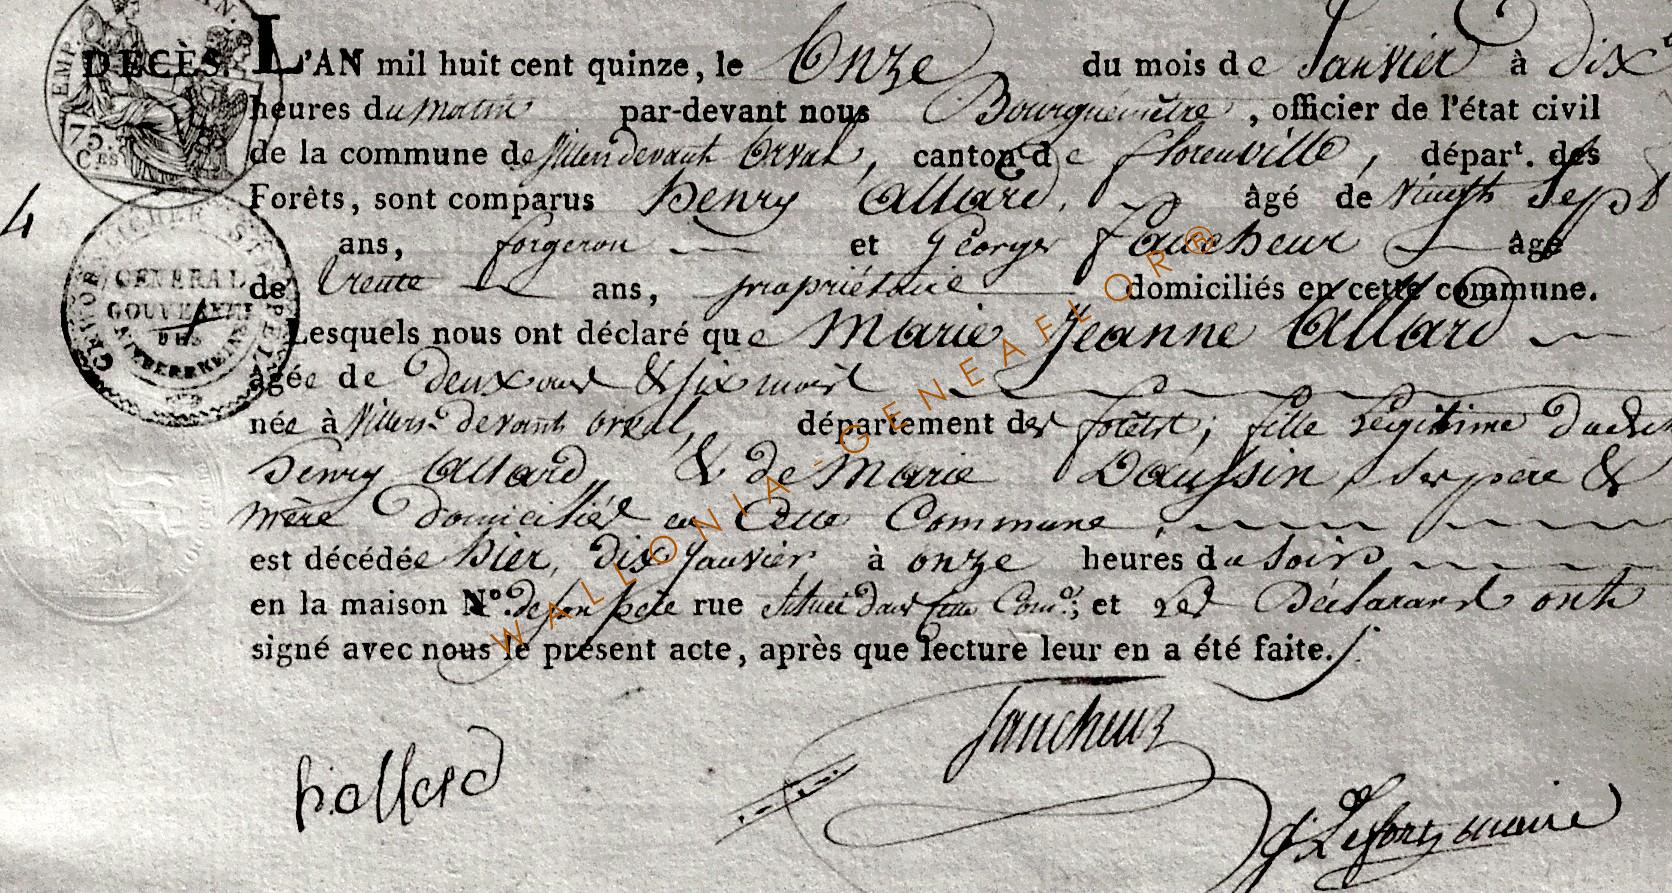 EMP.
75.
CES
DÉCÈS. L'AN mil huit cent quinze, le Onze du mois de Janvier à dix
heures du matin par-devant nous Bourguemètre, officier de l'état civil
de la commune de Villers devant Orval, canton de florenville, départ. des
Forêts, sont comparus henry Allard, âgé de vingt Sept
4
ans, forgeron et Georges faucheur âgé
de trente ans, propriétaire domiciliés en cette commune.
GENERAL
GOUVERNEMENT
DES
Lesquels nous ont déclaré que Marie Jeanne Allard
âgée de deux ans & six mois
née à Villers devant orval, département des forêts; fille légitime dudit
henry Allard, & de Marie Daussin, ses père &
mère domiciliés en Cette Commune,
est décédée hier, dix Janvier à onze heures du soir
en la maison N°. de son père rue située dans cette Com.e; et Les Déclarans ont
signé avec nous le présent acte, après que lecture leur en a été faite.
faucheur
h. allard
maire
WALLONIA-GENEAFLORB